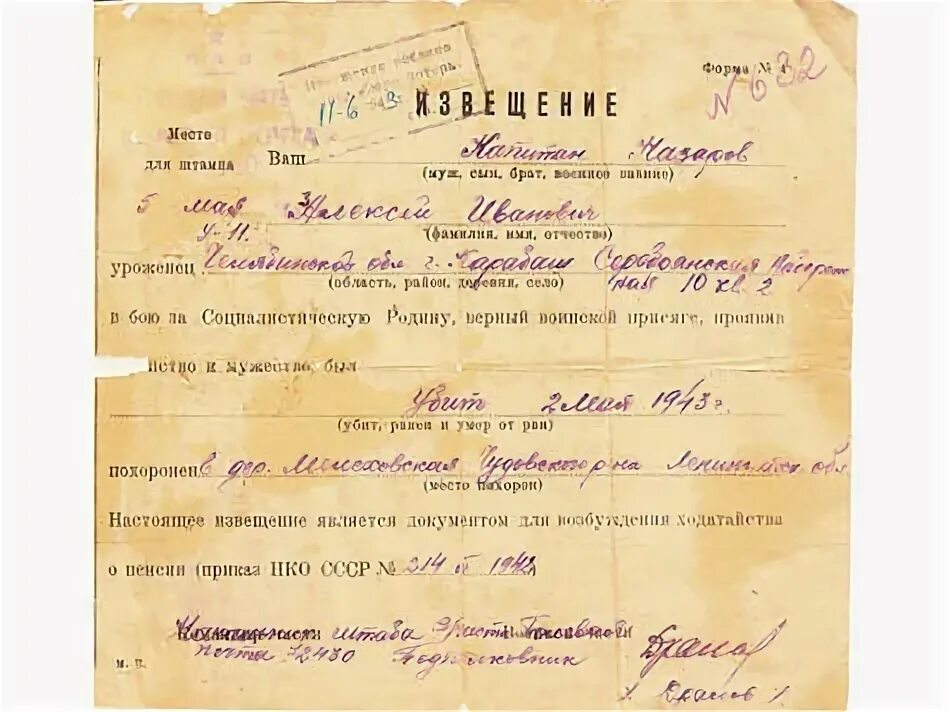 Форма № 4
N 632
11-6
ИЗВЕЩЕНИЕ
Место
для штампа
Ваш Капитан Назаров
(муж, сын, брат, военное звание)
5 мая Алексей Иванович
(фамилия, имя, отчество)
уроженец Челябинской обл г. Карабаш
(область, район, деревня, село) 10 кв. 2
в бою за Социалистическую Родину, верный воинской присяге, проявив
йство и мужество, был
Убит 2 мая 1943 г.
(убит, ранен и умер от ран)
похоронен В дер. Мелеховская Чудовского р-на обл
(место похорон)
Настоящее извещение является документом для возбуждения ходатайства
о пенсии (приказ НКО СССР № 214 1942
штаба
почта 72430 Подполковник
м. п.